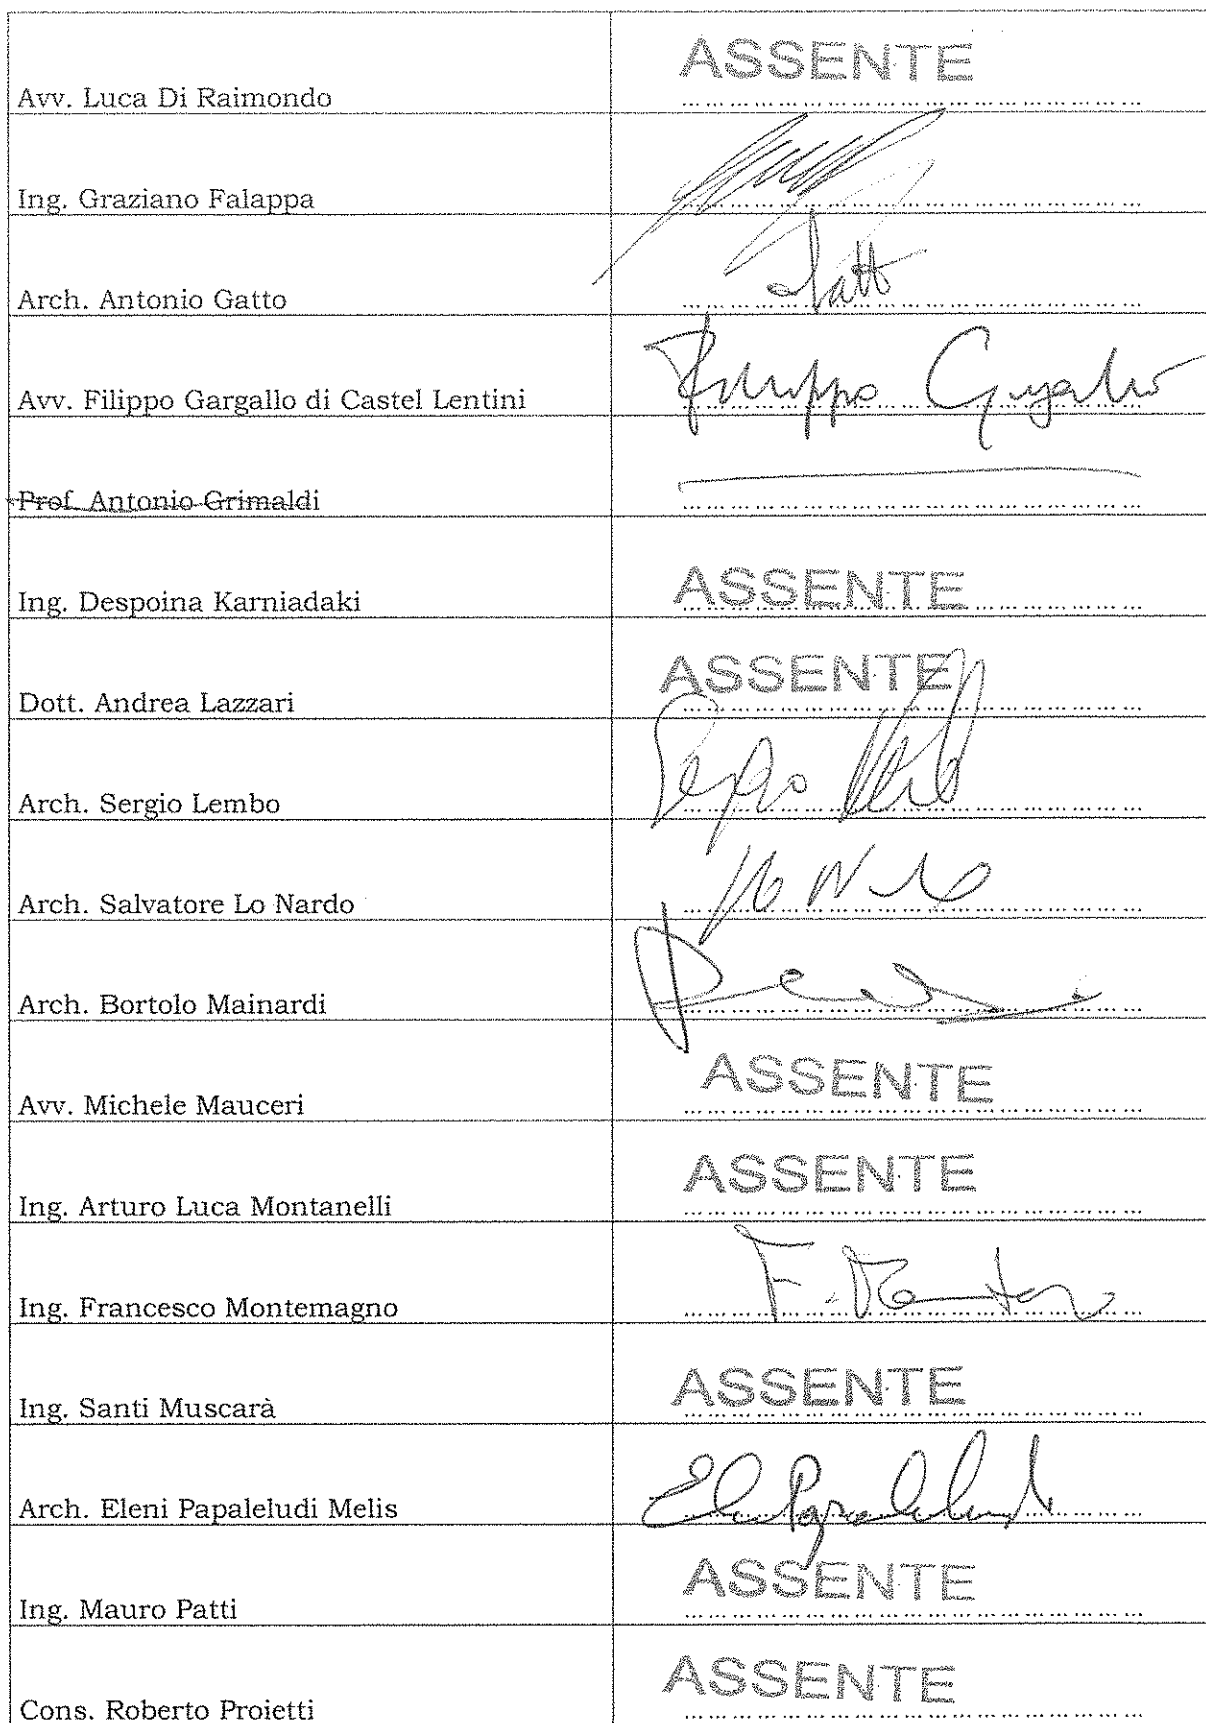 ASSENTE
Avv. Luca Di Raimondo
Ing. Graziano Falappa
Arch. Antonio Gatto
Gatto
Avv. Filippo Gargallo di Castel Lentini
Filippo Gargallo
Prof. Antonio Grimaldi
Ing. Despoina Karniadaki
ASSENTE
Dott. Andrea Lazzari
ASSENTE
Arch. Sergio Lembo
Sergio
Arch. Salvatore Lo Nardo
Arch. Bortolo Mainardi
Avv. Michele Mauceri
ASSENTE
Ing. Arturo Luca Montanelli
ASSENTE
Ing. Francesco Montemagno
Ing. Santi Muscarà
ASSENTE
Arch. Eleni Papaleludi Melis
Ing. Mauro Patti
ASSENTE
Cons. Roberto Proietti
ASSENTE